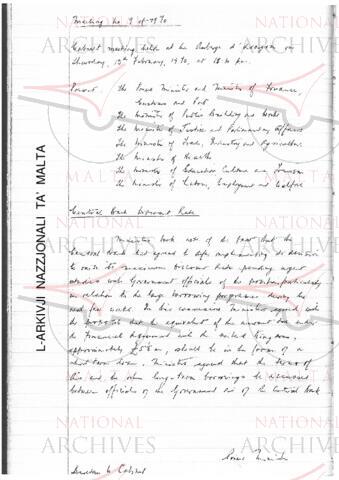 Meeting No 9 of 1970
Cabinet meeting held at the Auberge d'Aragon on
Thursday, 12th February, 1970, at 18.30 hrs.
Present: The Prime Minister and Minister of Finance,
Customs and Port
The Minister of Public Building and Works
The Minister of Justice and Parliamentary Affairs
The Minister of Trade, Industry and Agriculture
The Minister of Health
The Minister of Education Culture and Tourism
The Minister of Labour, Employment and Welfare
Central Bank Discount Rate
Ministers took note of the fact that the
Central Bank had agreed to defer implementing its decision
to raise its maximum discount rate pending urgent
studies with Government officials of the position particularly
in relation to the large borrowing programme during the
next few weeks. In this connexion Ministers agreed with
the proposal that the equivalent of the amount due under
the Financial Agreement with the United Kingdom,
approximately should be in the form of a
short term loan. Ministers agreed that the terms of
this and the other long-term borrowing be discussed
between officials of the Government and of the Central Bank
Prime Minister
Secretary to Cabinet
L-ARKIVJI NAZZJONALI TA' MALTA
NATIONAL
ARCHIVES